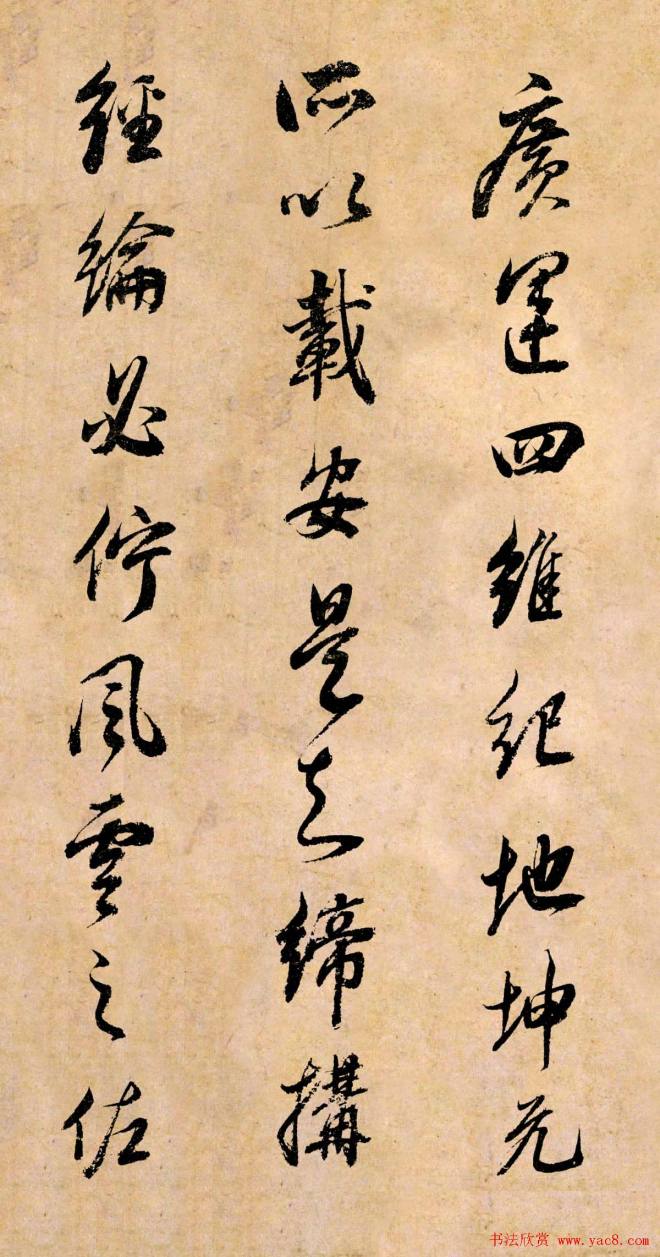 廣運四維紀地坤元
所以載安是知締搆
經綸必佇風雲之佐
书法欣赏 www.yac8.com